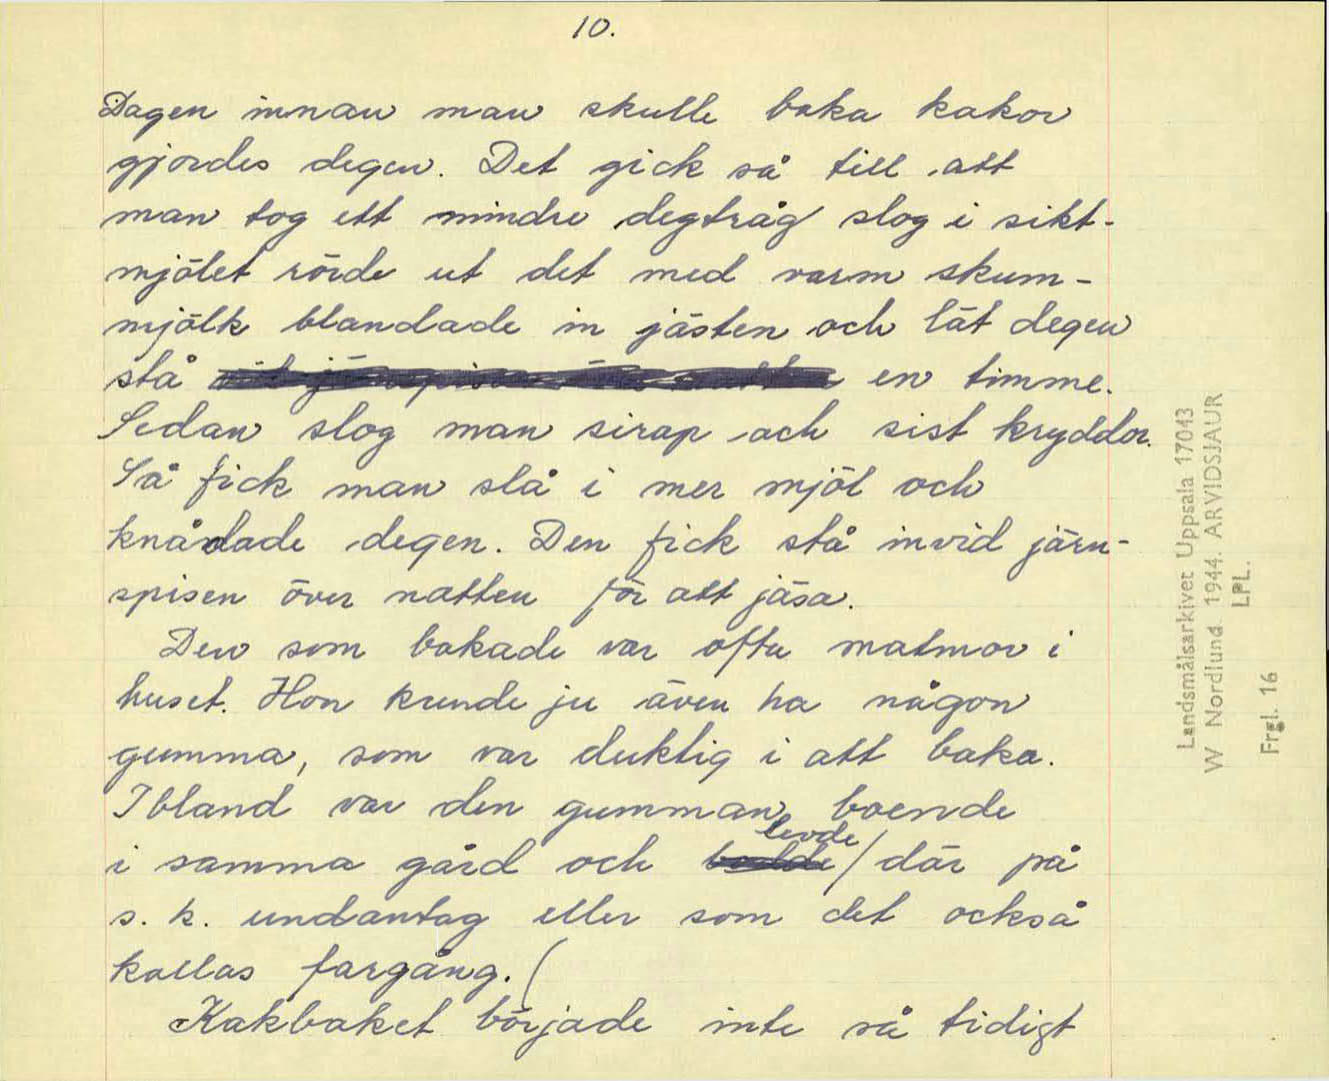 10.
Dagen innan man skulle baka kakor
gjordes degen. Det gick så till att
man tog ett mindre degtråg slog i sikt-
mjölet rörde ut det med varm skum-
mjölk blandade in jästen och lät degen
stå en timme.
Sedan slog man sirap och sist kryddor.
Så fick man slå i mer mjöl och
knådade degen. Den fick stå invid järn-
spisen över natten för att jäsa.
Den som bakade var ofta matmor i
huset. Hon kunde ju även ha någon
gumma, som var duktig i att baka.
Ibland var den gumman boende
levde
i samma gård och bodde / där på
s. k. undantag eller som det också
kallas fargång. (
Kakbaket började inte så tidigt
Landsmålsarkivet Uppsala 17043
W Nordlund 1944. ARVIDSJAUR
LPL.
Frgl. 16